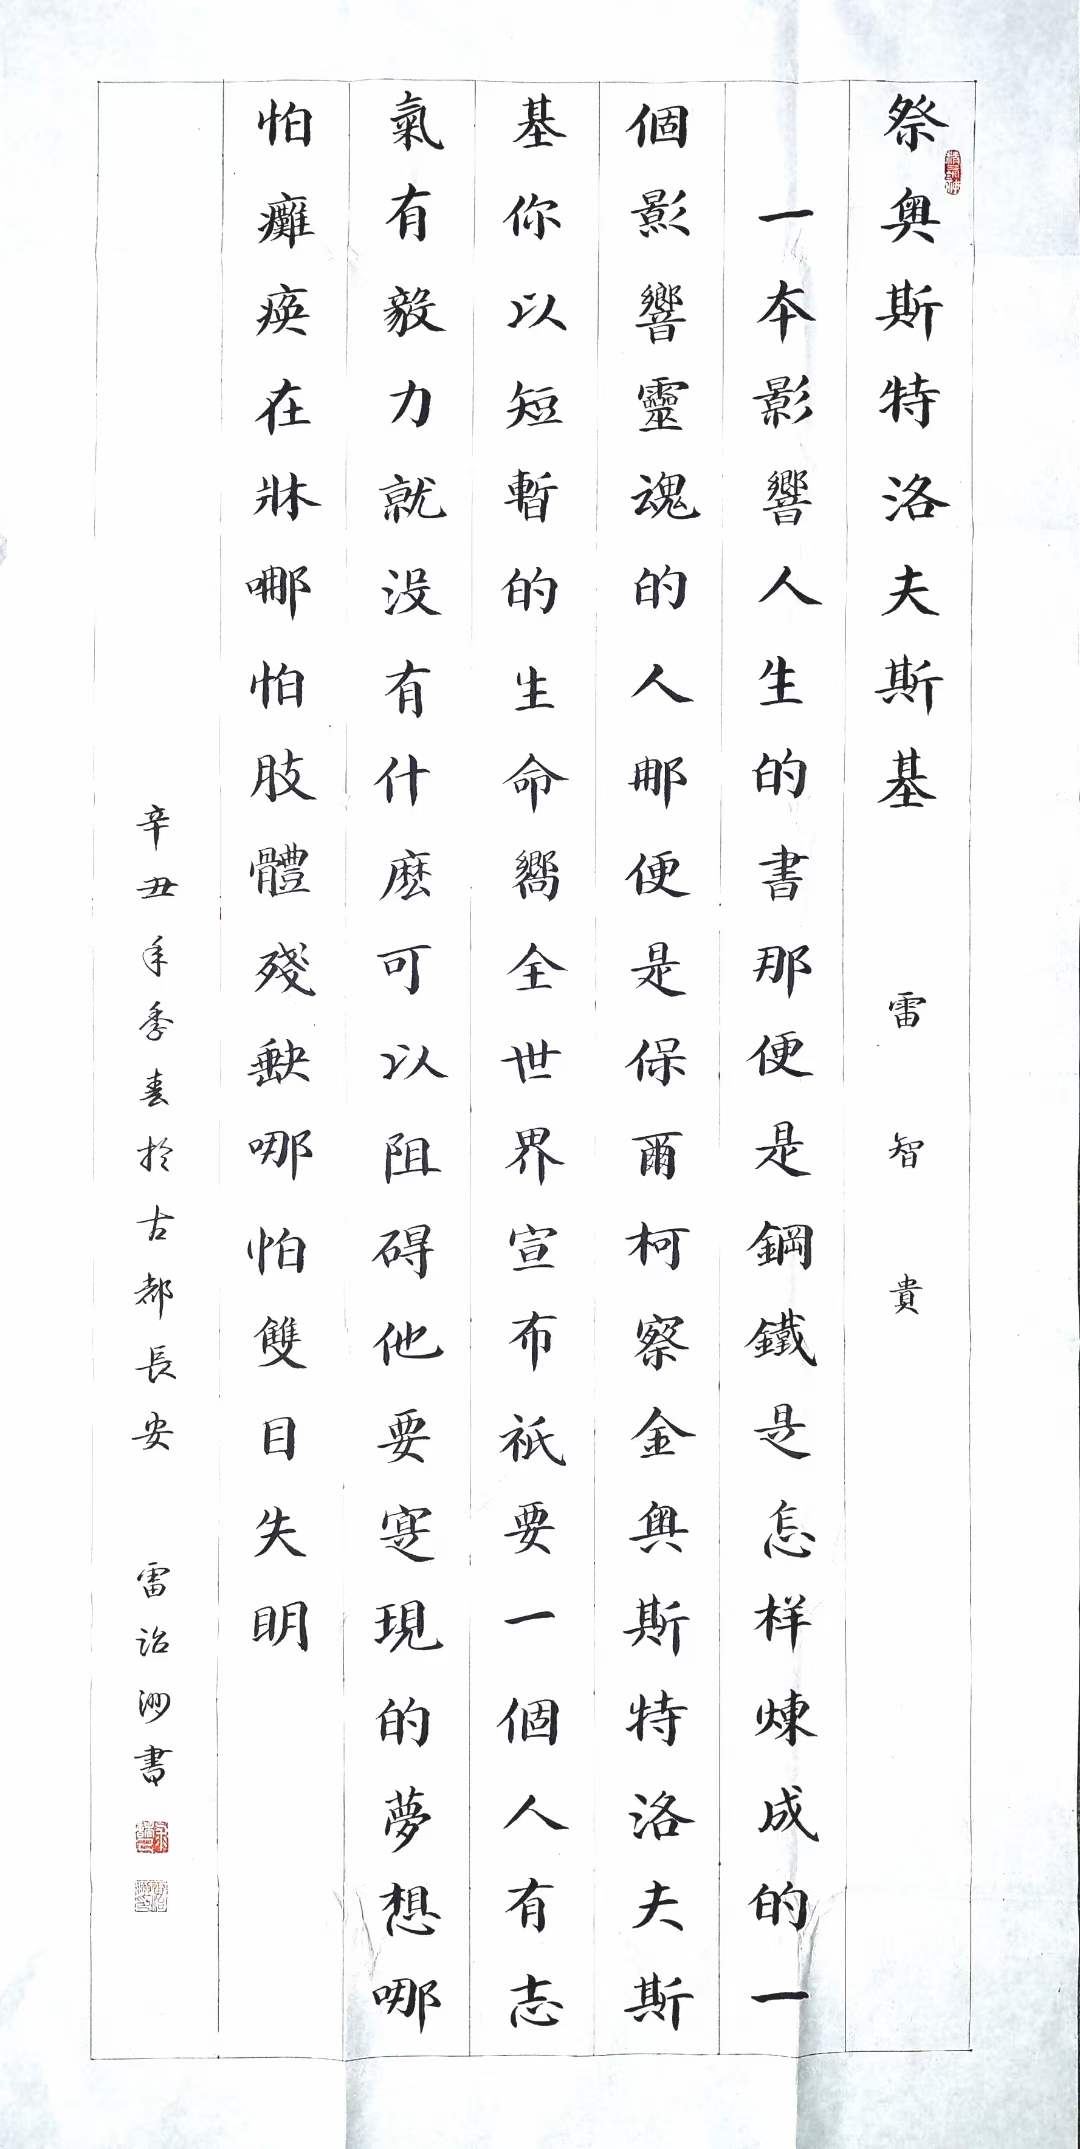 祭奧斯特洛夫斯基 雷智貴
一本影響人生的書那便是鋼鐵是怎样煉成的一
個影響靈魂的人那便是保爾柯察金奧斯特洛夫斯
基你以短暫的生命嚮全世界宣布祇要一個人有志
氣有毅力就没有什麽可以阻碍他要寔現的夢想哪
怕癱瘓在牀哪怕肢體殘缺哪怕雙目失明
辛丑年季春於古都長安 雷治洲書